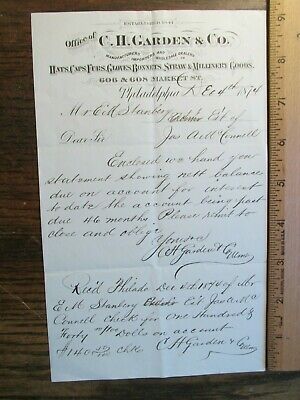 ESTABLISHED
Office of C. H. GARDEN & CO.
MANUFACTURERS IMPORTERS AND WHOLESALE DEALERS
HATS, CAPS, FURS, GLOVES, BONNETS, STRAW & MILLINERY GOODS,
606 & 608 MARKET ST.
Philadelphia Dec 4th 1874
Mr E M Stanbery
Est of
Dear Sir Jas A McConnell
Enclosed we hand your
statement showing nett balance
due on account for interest
to date the account being past
due 4½ months Please remit to
close and oblige
Yours &c
C H Garden & Co
Recd Philada Dec 1874 of Mr
E M Stanbery Est Jas A Mc
Connell check for One Hundred &
Forty Dolls on account
$140 chk C H Garden & Co